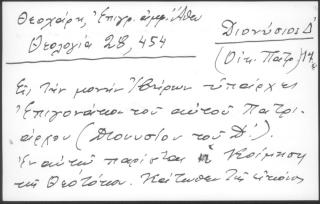 Θεοχάρη, Ἐπιγρ. ἀμφ. Ἄθω
Θεολογία 28, 454
Διονύσιος Δ΄
(Οἰκ. Πατρ.) 17
Εἰς τὴν μονὴν Ἰβήρων ὑπάρχει
Ἐπιγονάτιον τοῦ αὐτοῦ Πατρι-
άρχου (Διονυσίου τοῦ Δ΄).
Ἐν αὐτῷ παρίσταται ἡ Κοίμησις
τῆς Θεοτόκου. Κάτωθεν τῆς εἰκόνος